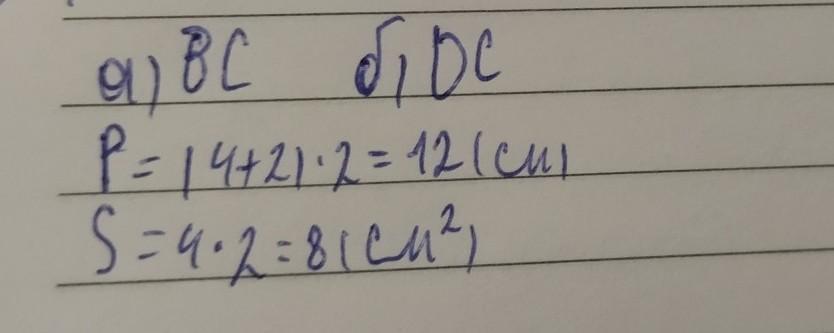 а) ВС б) DC
P = (4+2)·2 = 12 (см)
S = 4·2 = 8 (см²)